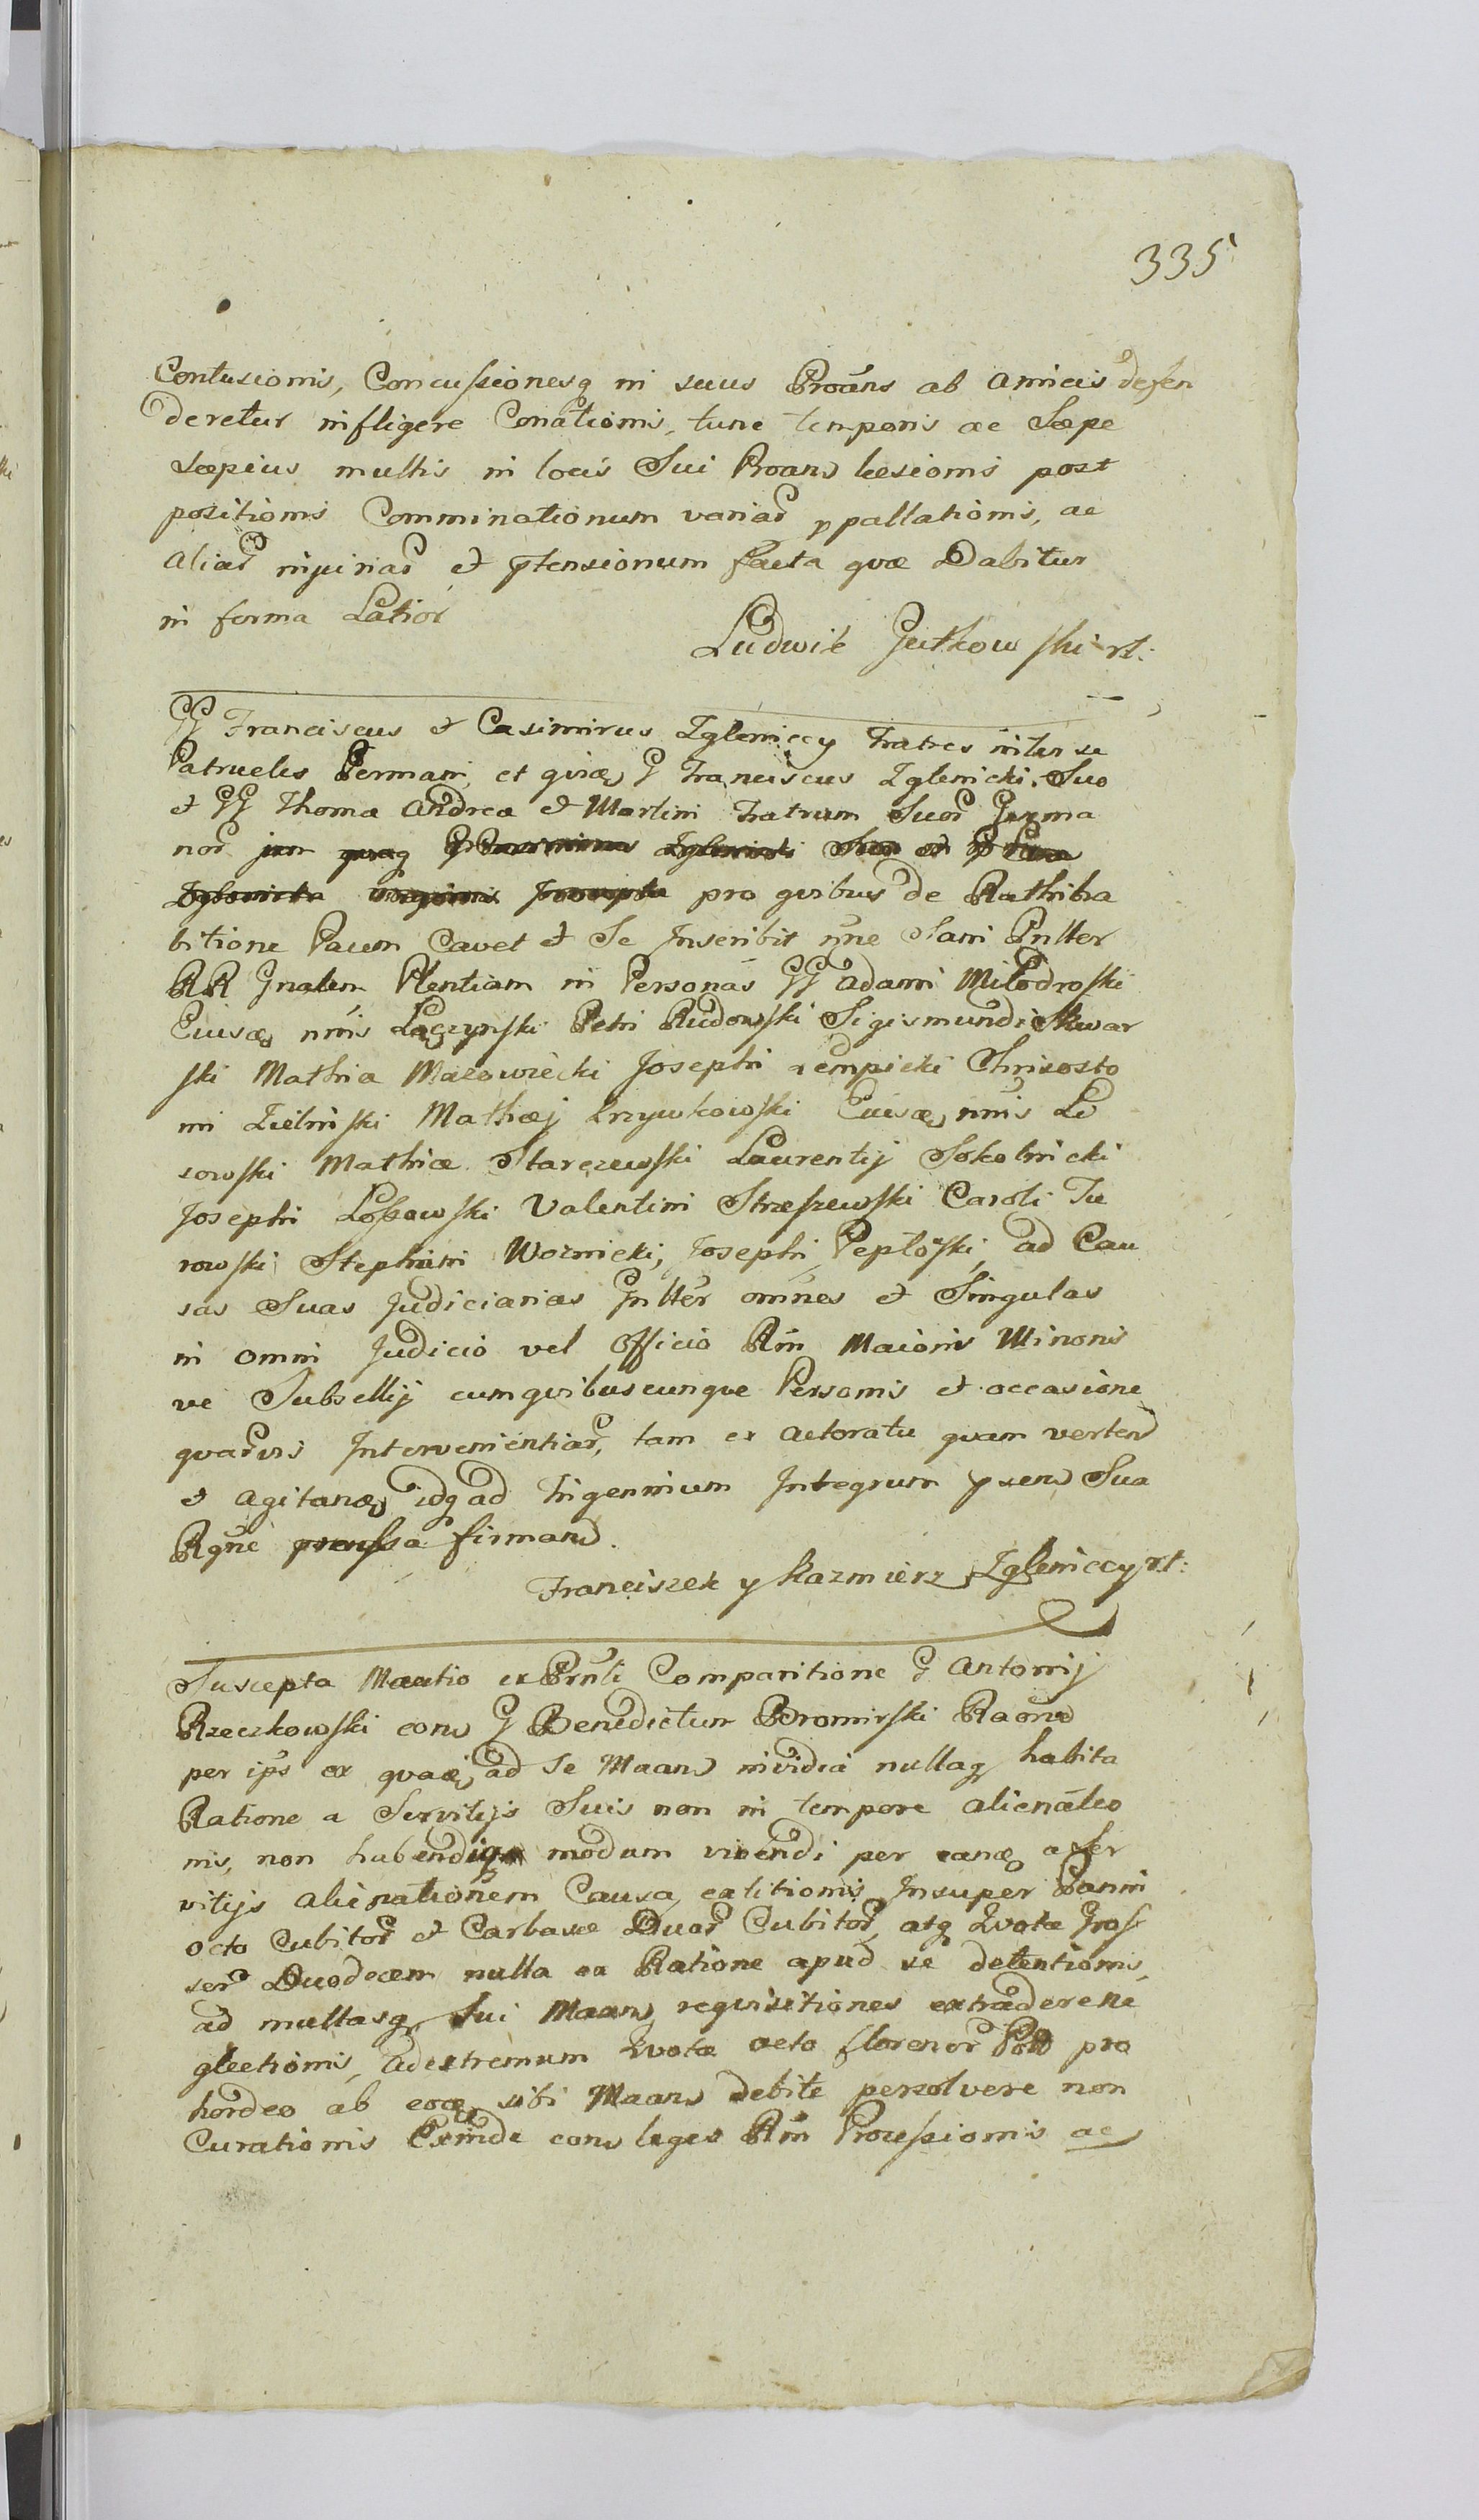 335
Contusionis, Concussionesq ni suus Proans ab amicis defen
deretur infligere Conationis, tunc temporis ac Sæpe
sæpius multis in locis Sui Proans læsionis post
positionis Comminationum variar ppallationis, ac
aliar injuriar et ptensionum facta quæ Dabitur
in forma Latior
Ludwik Gutkowski rt:
GG Franciscus et Casimirus Zgleniccy Fratres inter se
Patrueles Germani, et quidem G Franciscus Zglenicki Suo
et GG Thoma Andrea et Martini Fratrum Suor Germa
nor
pro quibus de Rathiha
bitione Pacum Cavet et Se Inscribit nne Sani Gnlter
RR Gnalem Plentiam in Personas GG Adami Milodroski
Eiusdem nnis Łączynski Petri Rudowski Sigismundi Skwar
ski Mathia Mazowiecki Josephi Rempicki Chrisosto
mi Zielinski Mathæj Krzywkowski Eiusdem nnis Li
sowski Mathiæ Starczewski Laurentij Sokolnicki
Josephi Łossowski Valentini Strzeszewski Caroli Tu
rowski Stephani Woznicki, Josephi Peplоski, ad Cau
sas Suas Judiciarias Gnlter omnes et Singulas
in omni Judicio vel Officio Rni Maioris Minoris
ve Subsellij cumquibuscunque Personis et occasione
quarvis Intervenientiar, tam ex actoratu quam verten
et agitandas idq ad Trigennium Integrum psens Sua
Rqne pmissa firmand.
Franciszek y Kazmierz Zgleniccy rt:
Suscepta Maatio ex Prnti Comparitione G Antonij
Rzeczkowski cons G Benedictum Bromirski Raone
per ips ex quadam ad se Maans invidia nullaq habita
Ratione a Servitijs Suis non in tempore alienatio
nis, non habendiq modum vivendi per eandem a Ser
vitijs alienationem Causa, exlitionis Insuper Panni
octo Cubitor et Carbasæ Duar Cubitor, atq Quotæ Gros
ser Duodecem nulla ex Ratione apud se detentionis,
ad multasq Sui Maans requisitiones extradere ne
glectionis, Adextremum Quotæ octo florenor Poll pro
hordeo ab eodem sibi Maans debite persolvere non
Curationis Exinde cons leges Rni Processionis ac